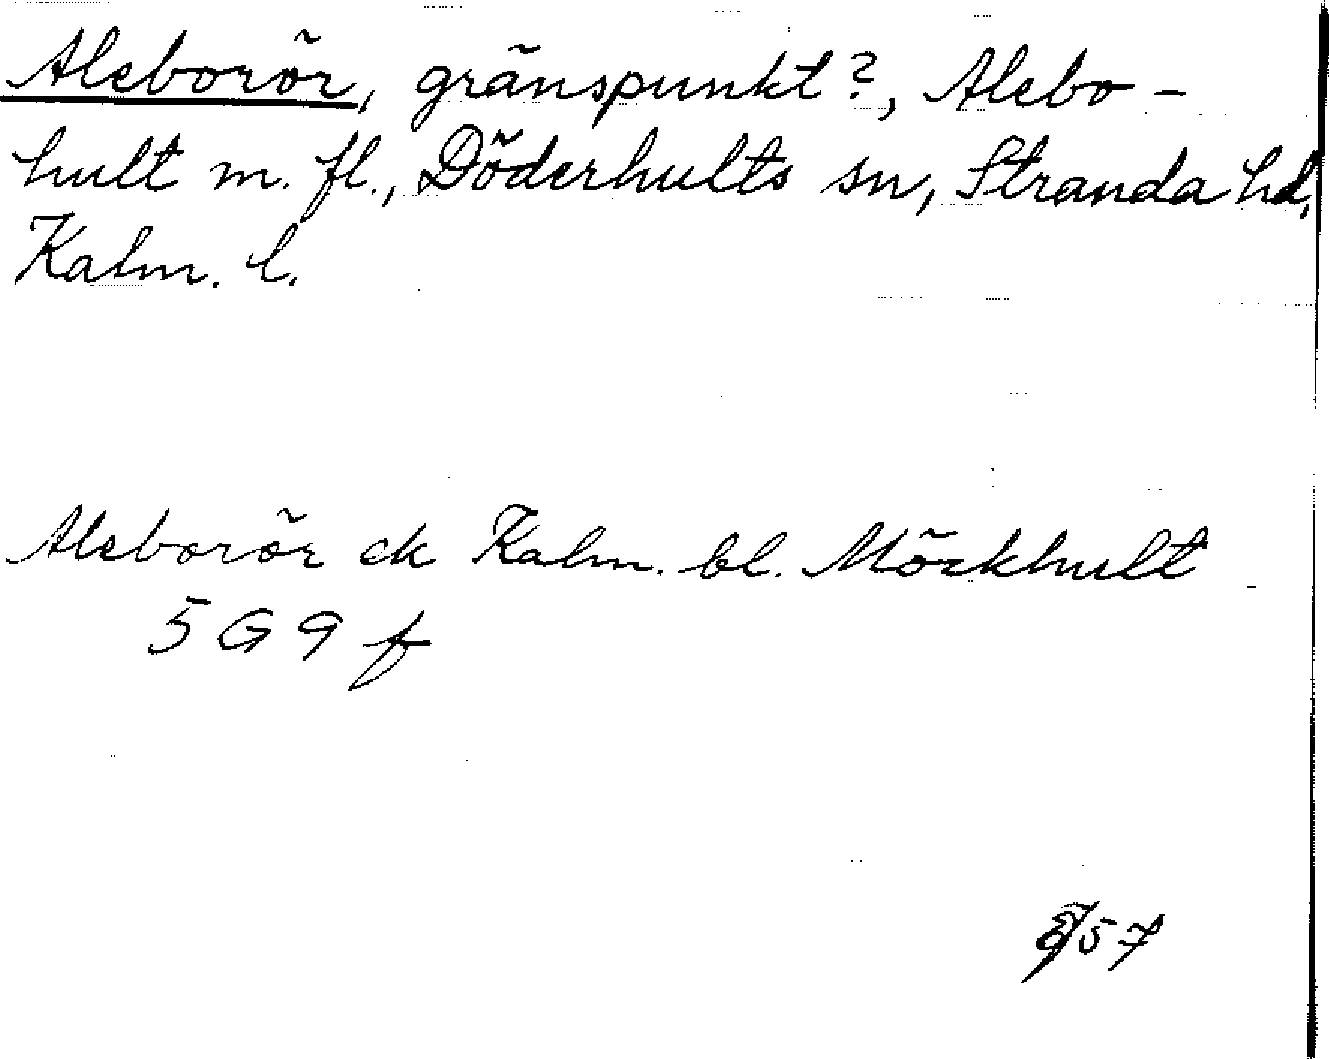 Aleborör, gränspunkt?, Alebo-
hult m. fl., Döderhults sn, Stranda hd,
Kalm. l.
Aleborör ek Kalm. bl. Mörkhult
5 G 9 f